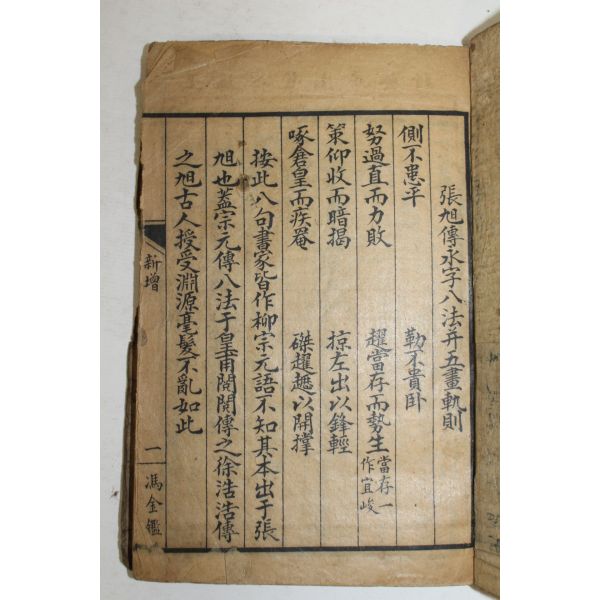 張旭傳永字八法并五畫軌則
側不愚平 勒不貴卧
努過直而力敗 趯當存而勢生 當存一作宜峻
策仰收而暗揭 掠左出以鋒輕
啄倉皇而疾罨 磔趯趯以開撐
按此八句書家皆作柳宗元語不知其本出于張
旭也蓋宗元傳八法于皇甫閱閱傳之徐浩浩傳
之旭古人授受淵源毫髮不亂如此
新增 一 馮金鑑